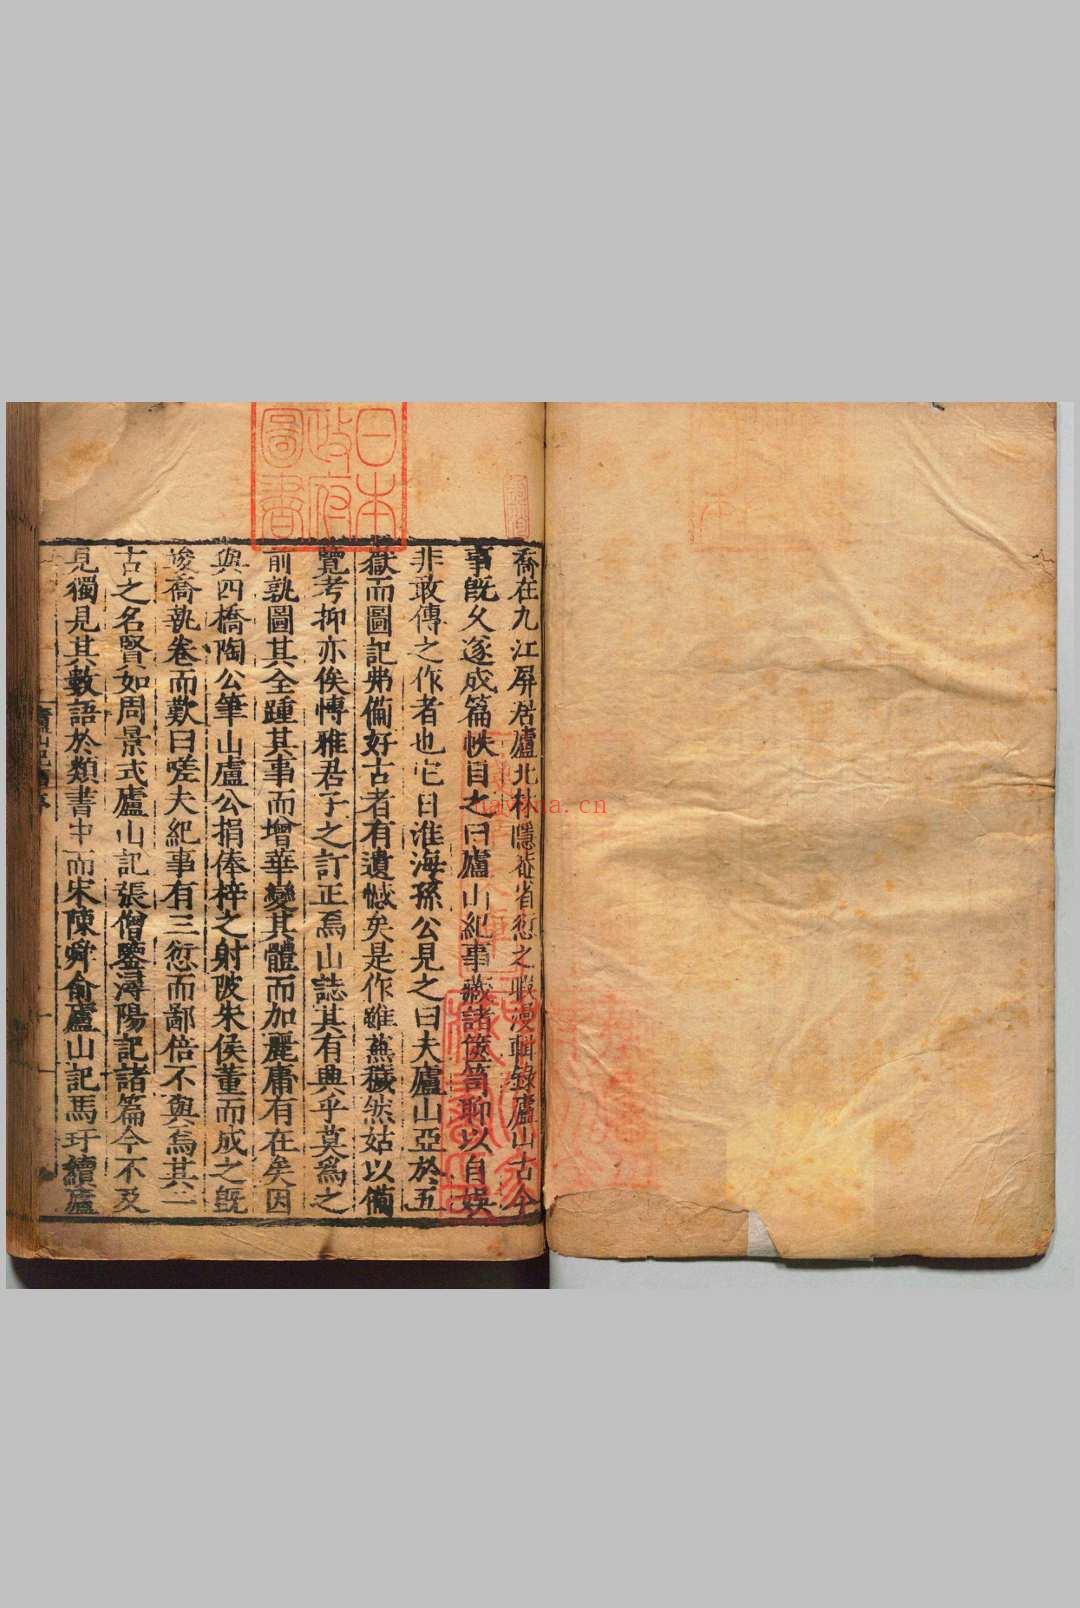 喬在九江屏居廬北林隱茲省愆之暇漫輯錄廬山古今
事旣久遂成篇帙目之曰廬山紀事藏諸篋笥聊以自娛
非敢傳之作者也它日淮海孫公見之曰夫廬山亞於五
嶽而圖記弗備好古者有遺憾矣是作雖蕪穢然姑以備
覽考抑亦俟博雅君子之訂正焉山誌其有興乎莫爲之
前孰圖其全踵其事而增華變其體而加麗庸有在矣因
與四橋陶公筆山盧公捐俸梓之射陂朱侯董而成之旣
竣喬執卷而歎曰嗟夫紀事有三愆而鄙倍不與焉其一
古之名賢如周景式廬山記張僧鑒潯陽記諸篇今不及
見獨見其數語於類書中而宋陳舜俞廬山記馬玗續廬
日本
政府
圖書